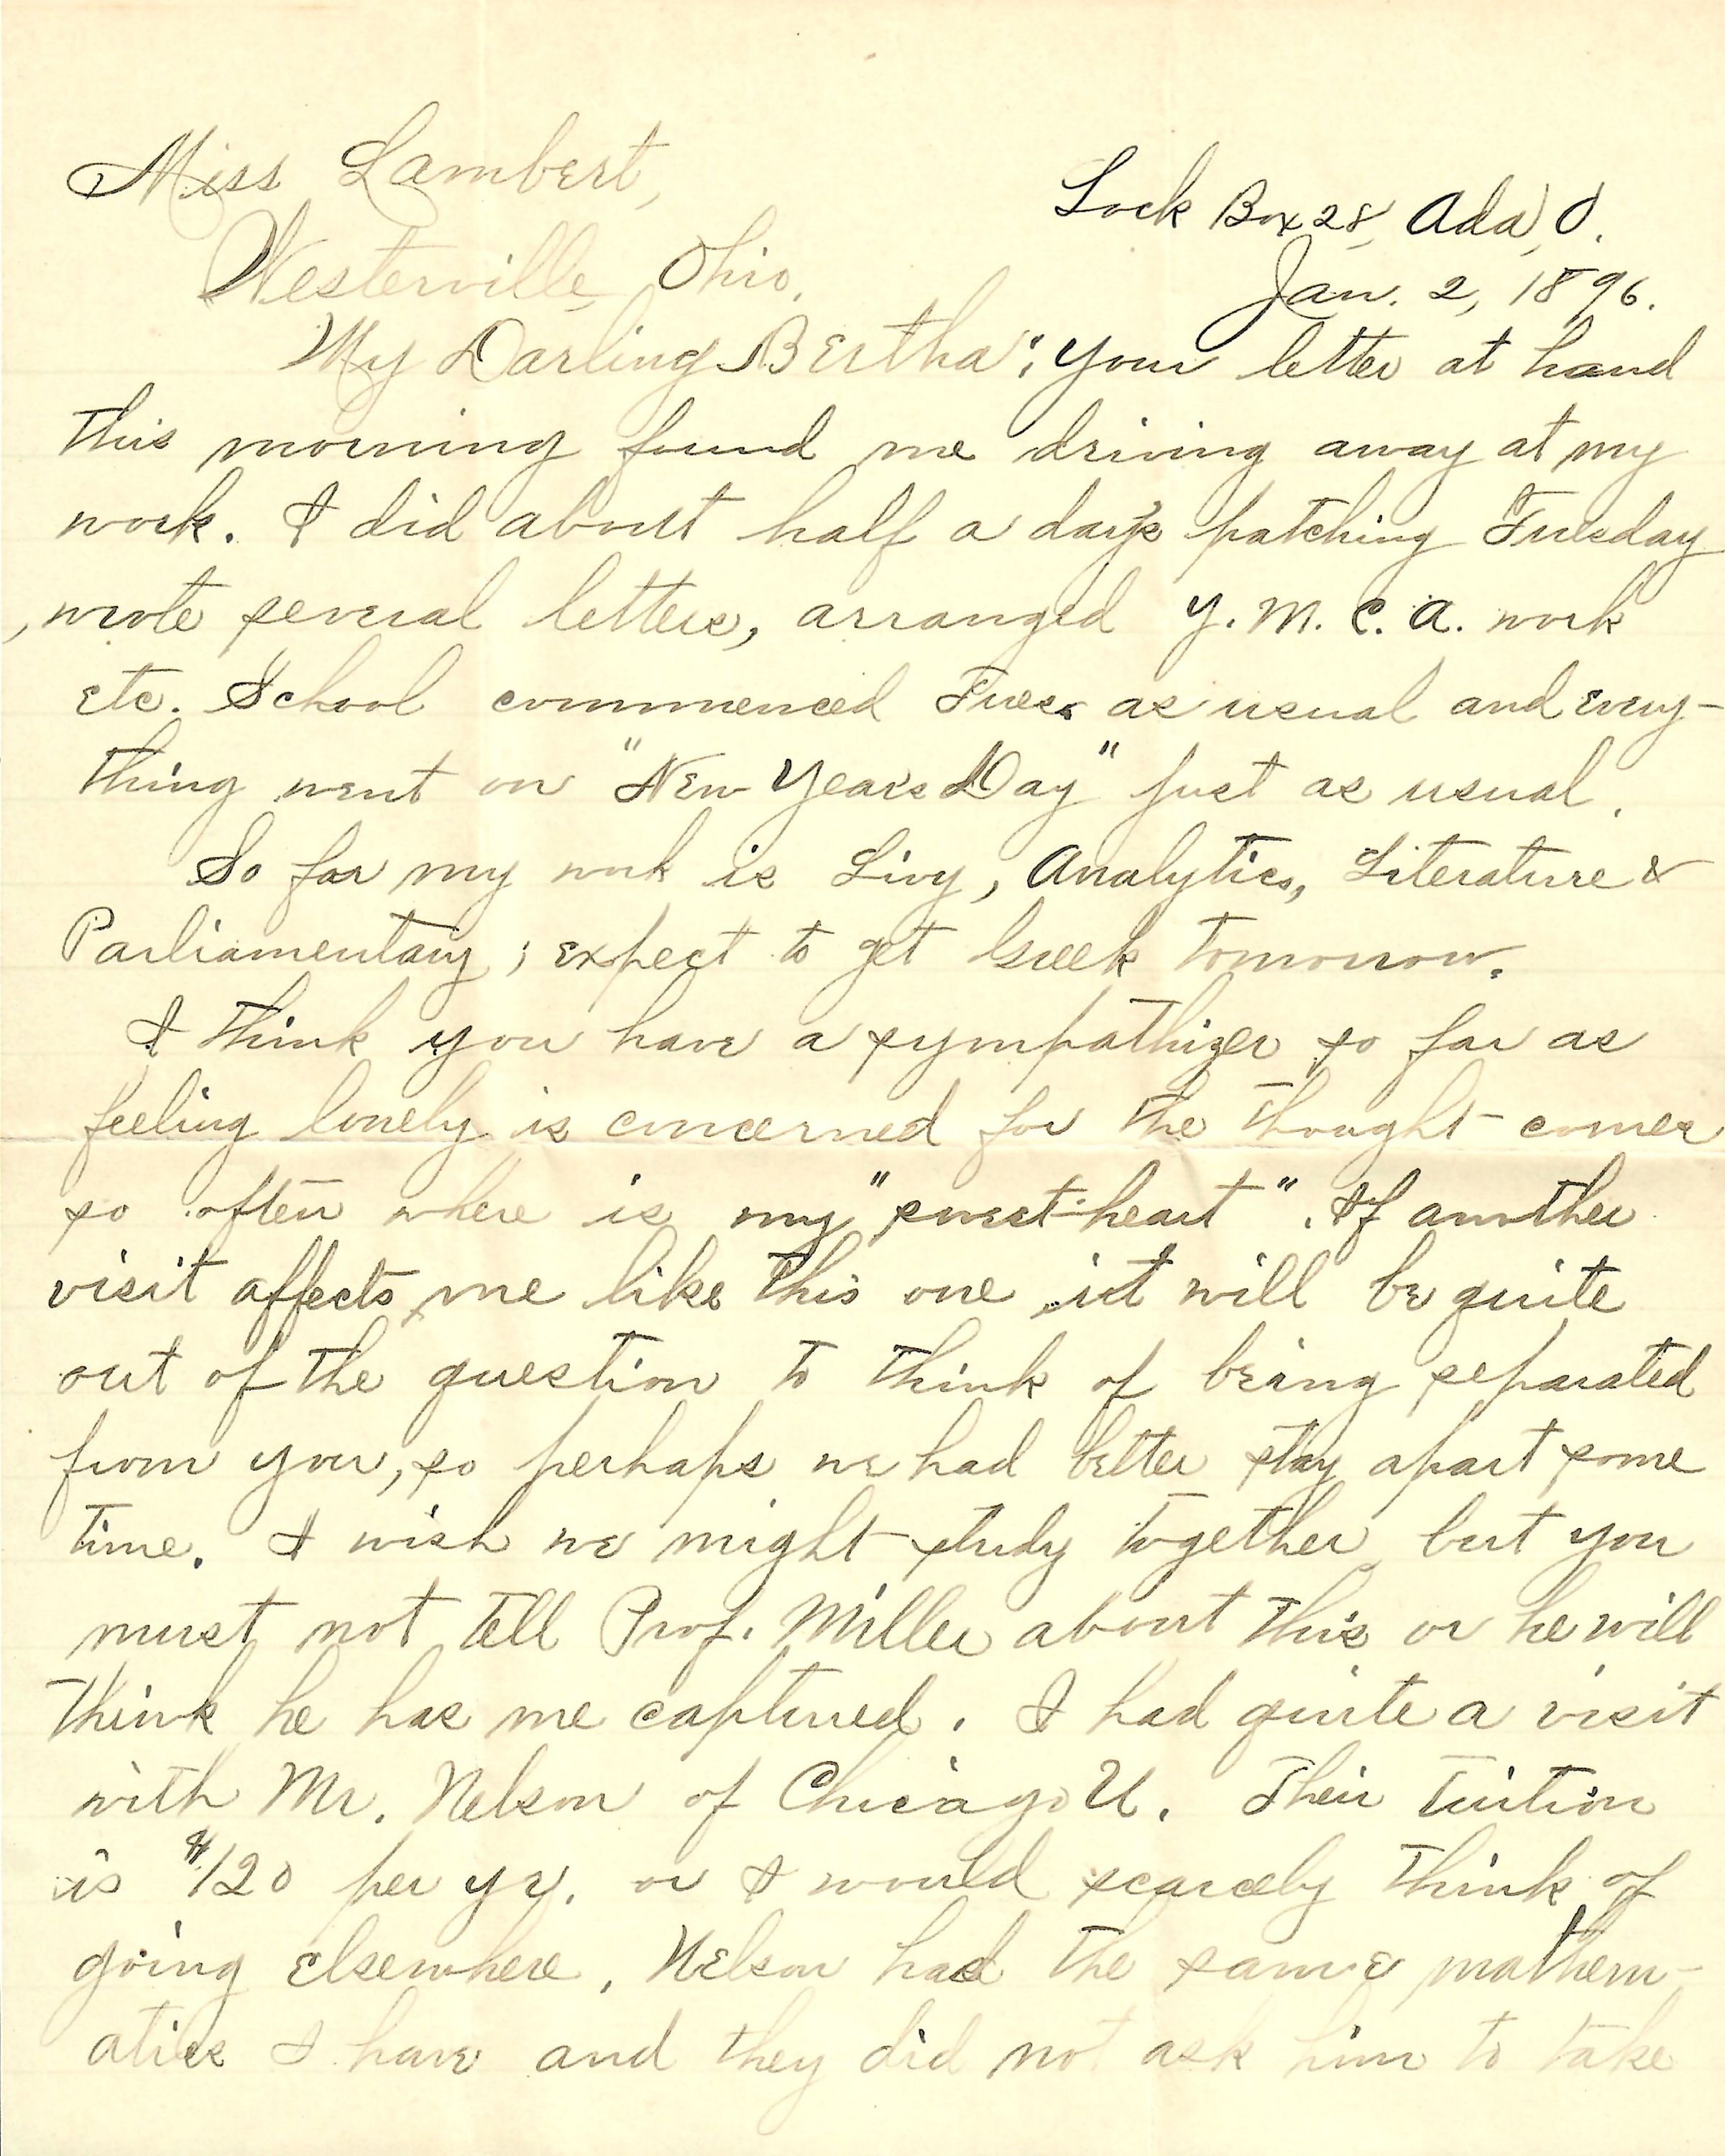 Miss Lambert,
Lock Box 28, Ada, O.
Westerville, Ohio.
Jan. 2, 1896.
My Darling Bertha: Your letter at hand
this morning found me driving away at my
work. I did about half a day's patching Tuesday
, wrote several letters, arranged Y.M.C.A. work
etc. School commenced Tues. as usual and every-
thing went on "New Years Day" just as usual.
So far my work is Livy, Analytics, Literature &
Parliamentary; expect to get Greek tomorrow.
I think you have a sympathizer so far as
feeling lonely is concerned for the thought comes
so often where is my "sweet-heart". If another
visit affects me like this one it will be quite
out of the question to think of being separated
from you, so perhaps we had better stay apart some
time. I wish we might study together, but you
must not tell Prof. Miller about this or he will
think he has me captured. I had quite a visit
with Mr. Nelson of Chicago U. Their tuition
is $120 per yr. or I would scarcely think of
going elsewhere. Nelson had the same mathem-
atics I have and they did not ask him to take